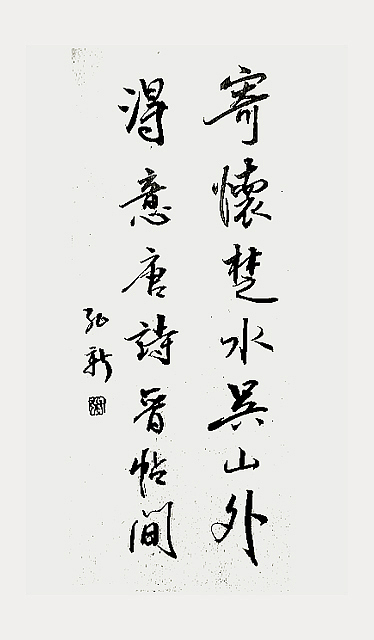 寄懷楚水吳山外
得意唐詩晉帖間
新